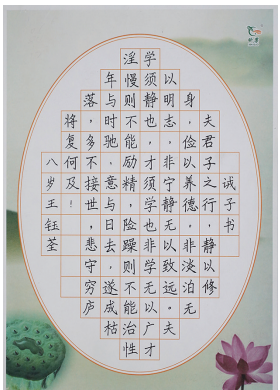 诫子书
夫君子之行，静以修
身，俭以养德。非淡泊无
以明志，非宁静无以致远。夫
学须静也，才须学也。非学无以广才
淫慢则不能励精，险躁则不能治性
年与时驰，意与日去，遂成枯
落，多不接世，悲守穷庐
将复何及！
八岁王钰荃